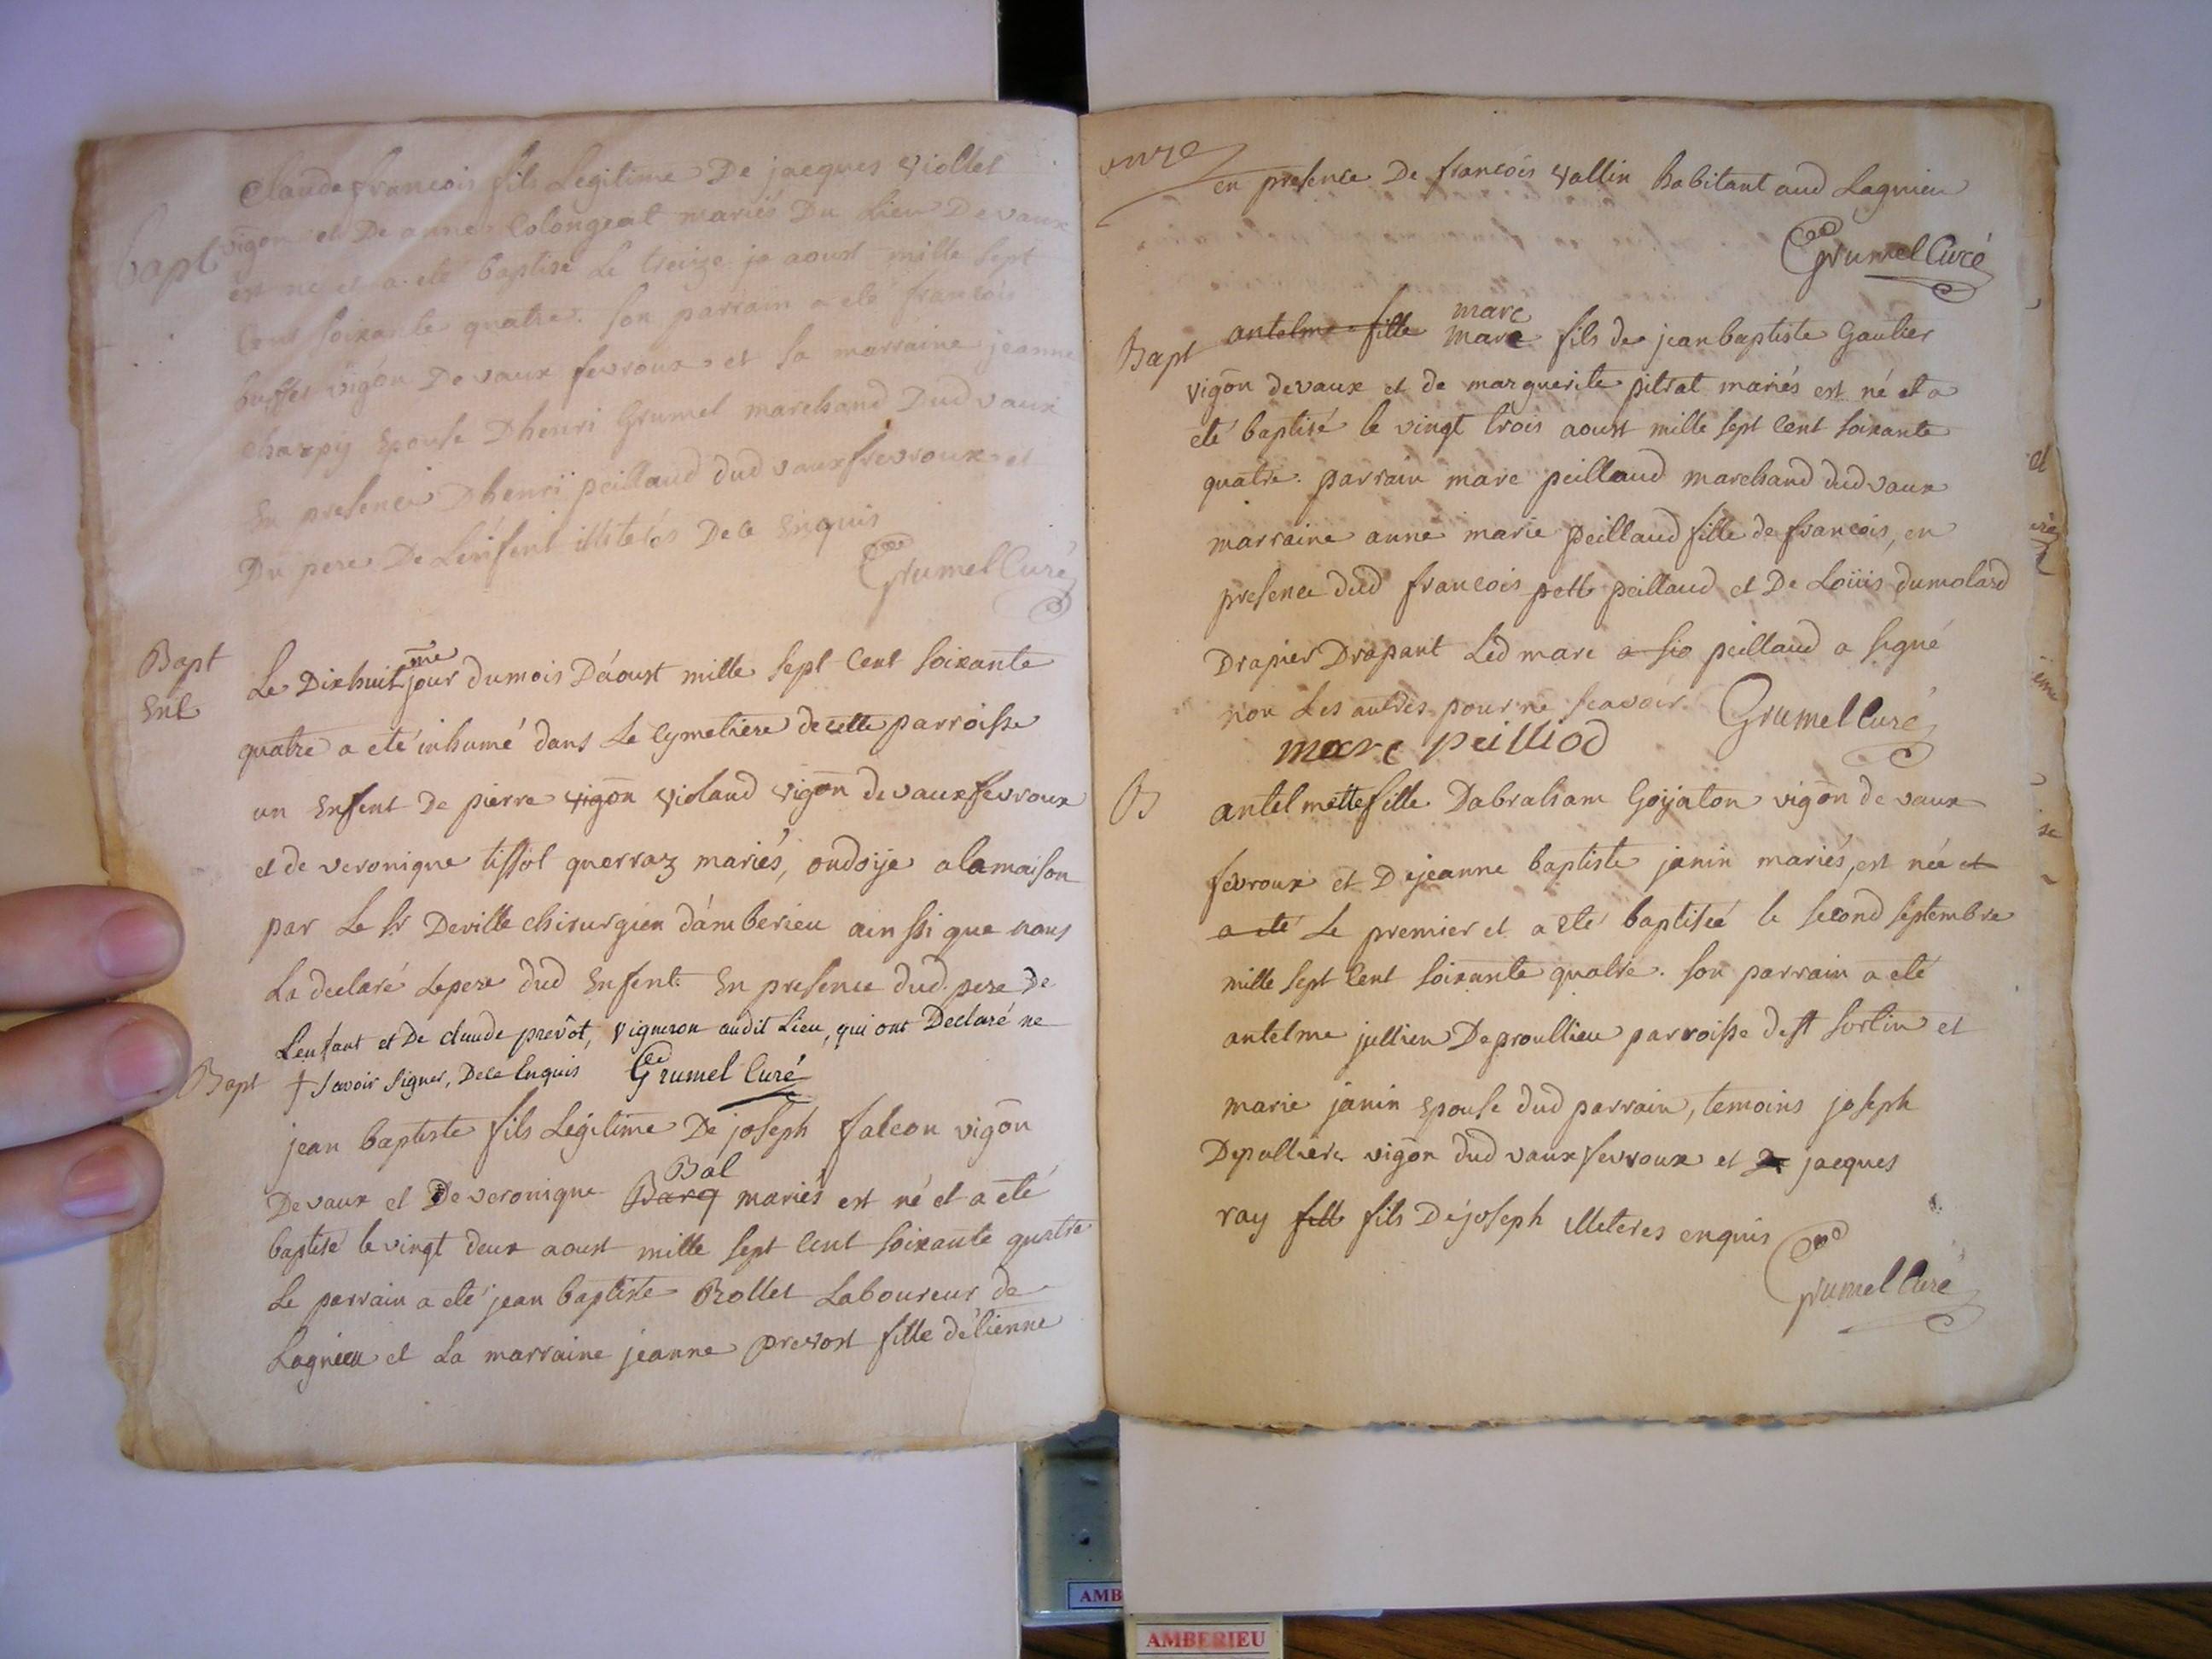 Claude francois fils Legitime De jacques Viollet
bapt
vigon et De anne Colongeat mariés Du Lieu De vaux
est né et a eté baptisé Le treize jo aoust mille sept
Cent soixante quatre. son parrain a eté francois
buffet vigon De vaux fevroux et sa marraine jeanne
charpy Epouse Dhenri Grumel marchand Dud vaux
En presence Dhenri peillaud dud vauxfevroux et
Du pere De Lenfent illiterés De ce Enquis
Grumel Curé
Bapt
Ent
Le Dixhuitme jour du mois Daoust mille sept Cent soixante
quatre a eté inhumé dans Le Cymetiere de cette parroisse
un Enfent De pierre vigon violand vigon de vauxfevroux
et de veronique tissot querraz mariés, ondoije a la maison
par Le Sr Deville chirurgien dámberieu ainssi que nous
La declaré Le pere dud Enfent. En presence dud. pere De
Lenfant et De claude prevôt, Vigneron audit Lieu, qui ont Declaré ne
Bapt
† savoir signer, De ce Enquis Grumel Curé
jean baptiste fils Legitime De joseph falcon vigon
Bal
De vaux et De veronique Barq mariés est né et a eté
baptisé le vingt deux aoust mille sept Cent soixante quatre
Le parrain a eté jean baptiste Rollet Laboureur de
Lagnieu et La marraine jeanne prevost fille détienne
onze
en presence De francois Vallin habitant aud Lagnieu
Grumel Curé
marc
Bapt
antelme fille marc fils de jean baptiste Gautier
vigon de vaux et de marguerite pitrat mariés est né et a
eté baptisé le vingt trois aoust mille sept Cent soixante
quatre. parrain marc peillaud marchand dud vaux
marraine anne marie peillaud fille de francois, en
presence dud francois pett peillaud et De Loüis dumolard
Drapier Drapant Led marc a sio peillaud a signé
non Les autres pour ne scavoir. Grumel Curé
marc peilliod
B
antelmette fille Dabraham Goyaton vigon de vaux
fevroux et De jeanne baptiste janin mariés, est née et
a eté Le premier et a eté baptiseé le second septembre
mille sept Cent soixante quatre. son parrain a eté
antelme jullien De proullieu parroisse de st sorlin et
marie janin Epouse dud parrain, temoins joseph
Depallier vigon dud vaux fevroux et De jacques
ray fill fils De joseph illeteres enquis
Grumel Curé
AMB
AMBERIEU